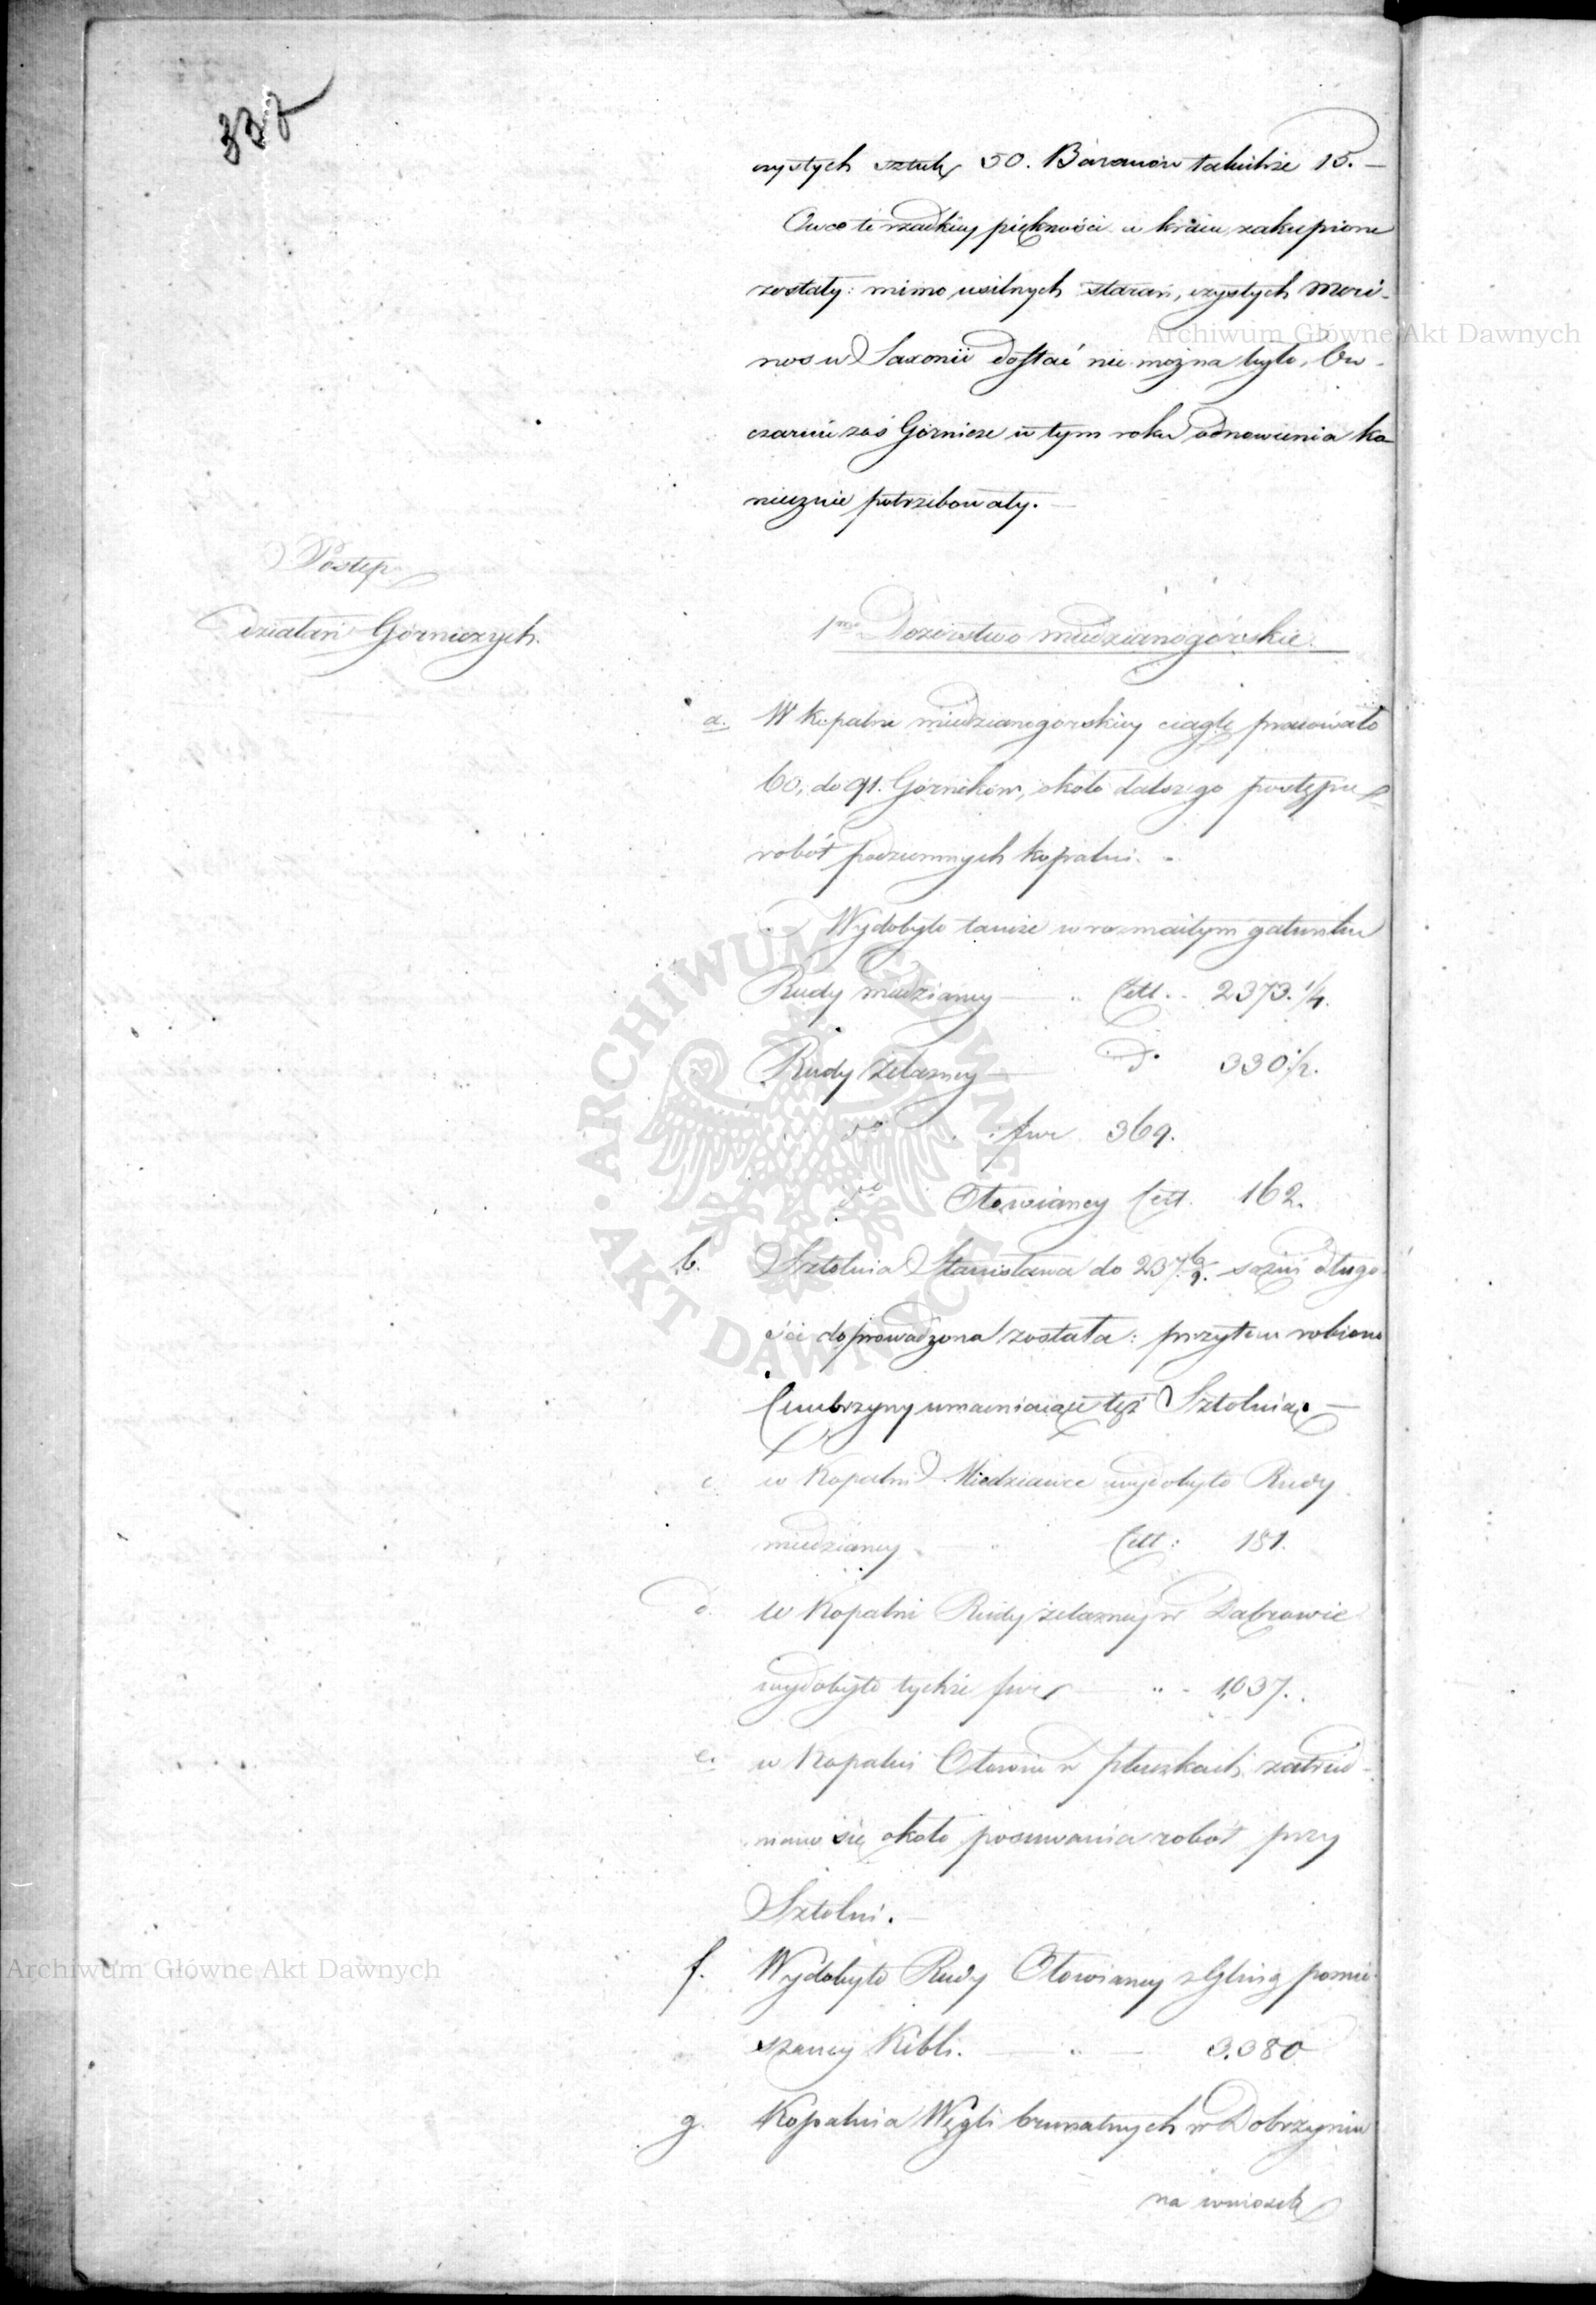 337
czystych sztuk 50. Baranów takichże 15. —
Owce te rzadkiey piękności w kraiu zakupione
zostały: mimo usilnych starań, czystych Meri-
nos w Saxonii dostać nie można było, Ow-
czarnie zaś Górnicze w tym roku odnowienia ko-
niecznie potrzebowały. —
Postęp
działań Górniczych.
1mo Dozorstwo miedzianogórskie.
a. W kopalni miedzianogorskiey ciągle pracowało
60, do 91. Górników, około dalszego postępu
robót podziemnych kopalni. -
Wydobyto tamże w rozmaitym gatunku
Rudy miedzianey — " Cett. - 2373. 1/4.
Rudy żelazney — do 330 1/2.
do fur 369.
do Ołowianey Cett. 162.
b. Sztolnia Stanisława do 237. 6/9. sążni długo-
ści doprowadzona została: przytem robiono
Cembrzyny umacniaiące tęż Sztolnią. —
c. w Kopalni Miedziance wydobyto Rudy
miedzianey — " Cett: 181.
d. W Kopalni Rudy żelazney w Dąbrowie
wydobyto tychże fur — " - 1,037.
e. w Kopalni Ołowiu w płuczkach zatrud-
niano się około posuwania robót przy
Sztolni. —
f. Wydobyto Rudy Ołowianey z Gliną pomie-
szaney Kibli. — " — 3,080
g. Kopalnia Węgli brunatnych w Dobrzyniu
na wniosek
Archiwum Główne Akt Dawnych
Archiwum Główne Akt Dawnych
ARCHIWUM GŁÓWNE AKT DAWNYCH